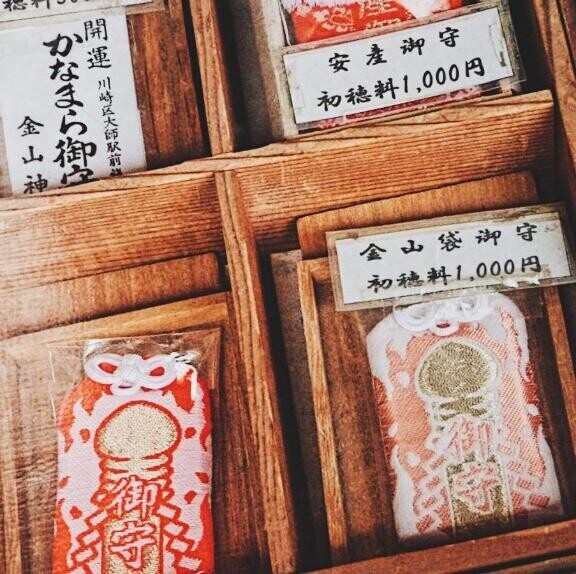 開運
かなまら御守
川崎区大師駅前
金山神
安産御守
初穂料1,000円
金山袋御守
初穂料1,000円
御守
御守